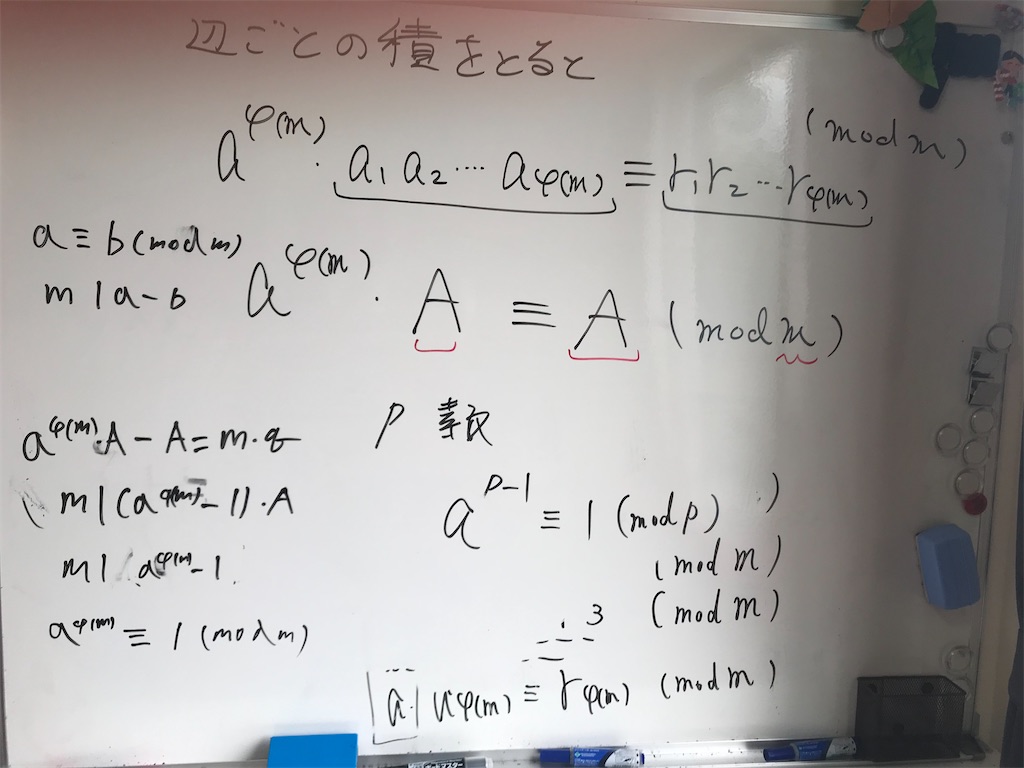 辺ごとの積をとると
a^φ(m) · a₁ a₂ ···· a_φ(m) ≡ r₁ r₂ ··· r_φ(m) (mod m)
a ≡ b (mod m)
m | a - b
a^φ(m) · A ≡ A (mod m)
a^φ(m) · A - A = m · q
m | (a^φ(m) - 1) · A
m | a^φ(m) - 1
a^φ(m) ≡ 1 (mod m)
P 素数
a^p-1 ≡ 1 (mod p)
(mod m)
(mod m)
3
a · a_φ(m) ≡ r_φ(m) (mod m)